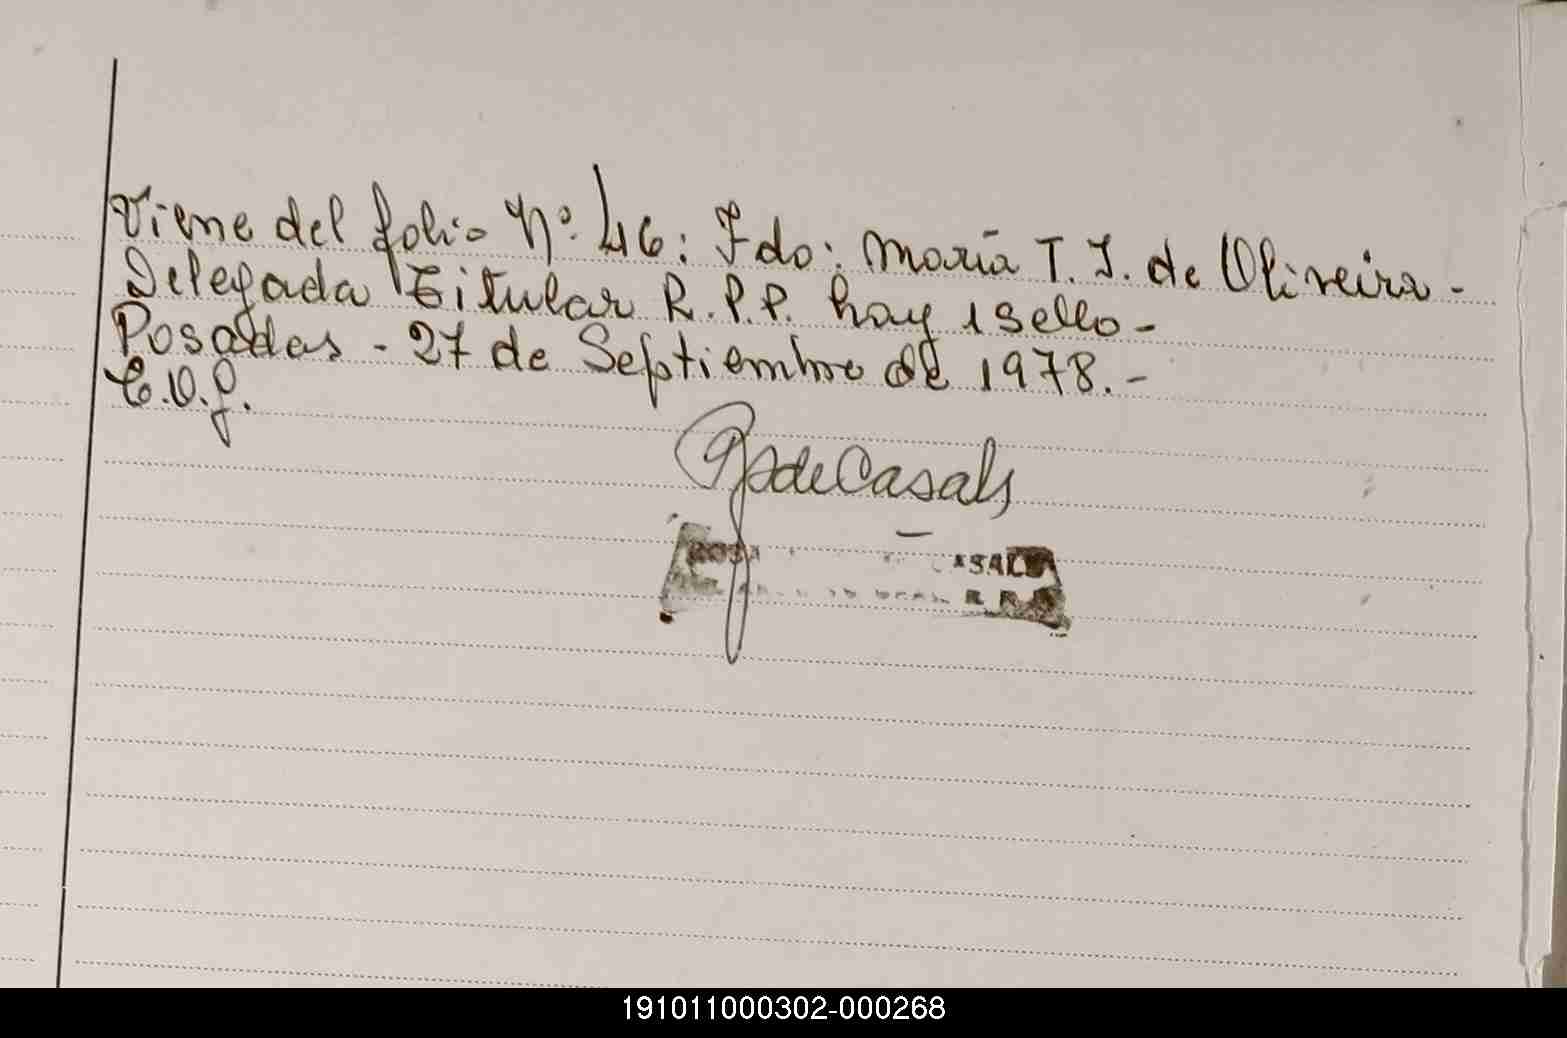 Viene del folio Nº. 46: Fdo: María T. J. de Oliveira-
Delegada Titular R.P.P. hay 1 sello-
Posadas - 27 de Septiembre de 1978.-
C.V.f.
de Casals
ROSA CASALS
R.P.P.
191011000302-000268